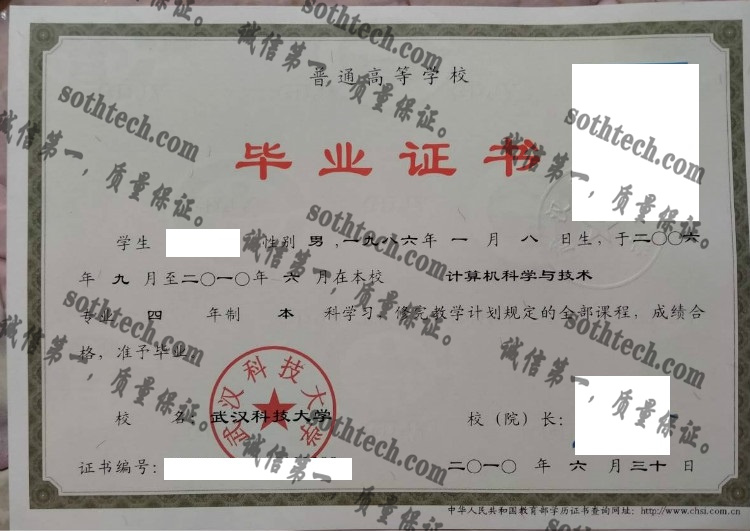 普通高等学校
毕业证书
学生 性别 男 ,一九八六年 一 月 八 日生, 于二〇〇六
年 九 月至二〇一〇年 六 月在本校 计算机科学与技术
专业 四 年制 本 科学习, 修完教学计划规定的全部课程, 成绩合
格, 准予毕业。
武汉科技大学
校 名: 武汉科技大学 校(院)长:
证书编号: 二〇一〇 年 六 月 三十 日
中华人民共和国教育部学历证书查询网址: http://www.chsi.com.cn
sothtech.com
诚信第一，质量保证。
sothtech.com
诚信第一，质量保证。
sothtech.com
诚信第一，质量保证。
sothtech.com
诚信第一，质量保证。
sothtech.com
诚信第一，质量保证。
sothtech.com
诚信第一，质量保证。
sothtech.com
诚信第一，质量保证。
sothtech.com
诚信第一，质量保证。